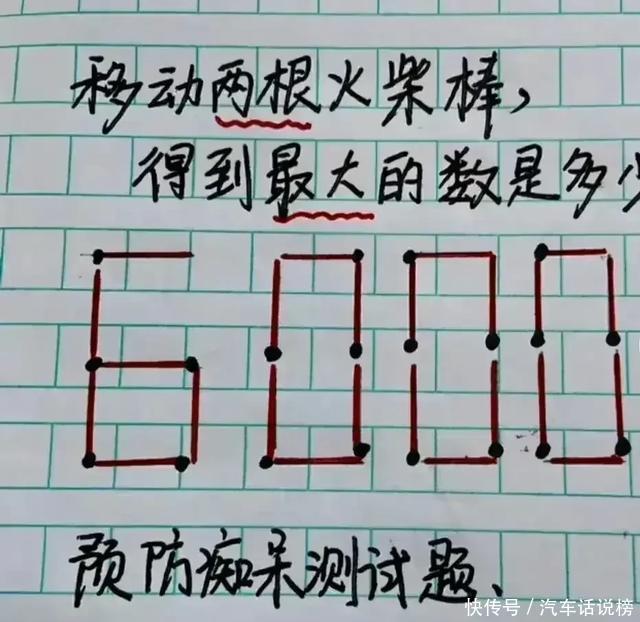 移动两根火柴棒，
得到最大的数是多少
6000
预防痴呆测试题、
快传号／汽车话说榜